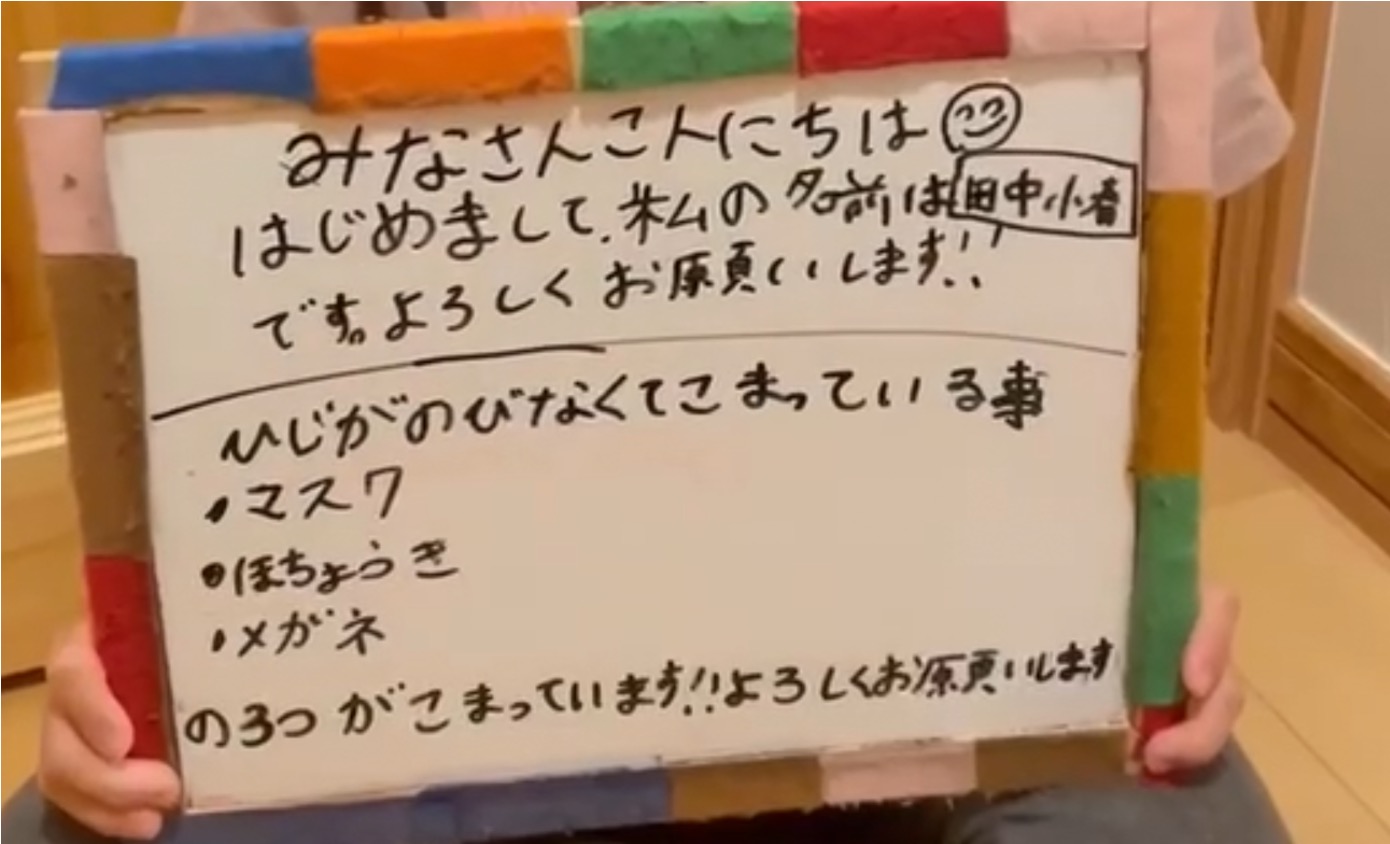 みなさんこんにちは
はじめまして.私の名前は田中小春
です。よろしくお願いします!!
ひじがのびなくてこまっている事
・マスク
・ほちょうき
・メガネ
の3つがこまっています!!よろしくお願いします